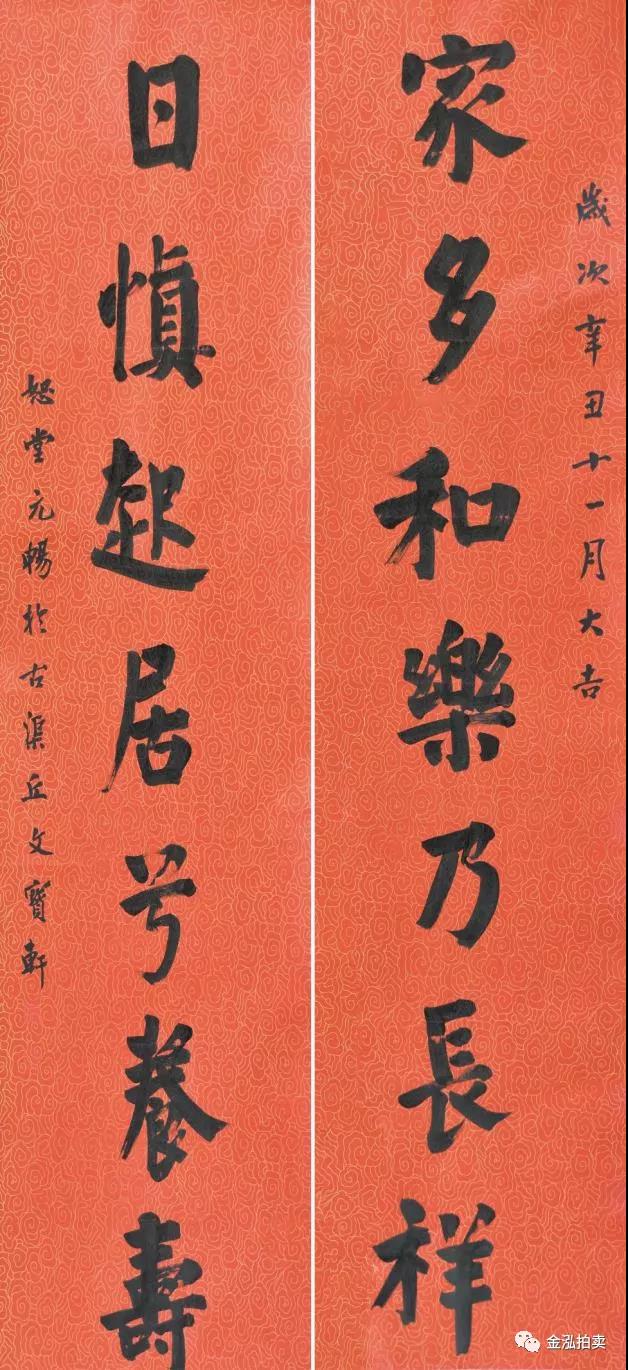 歲次辛丑十一月大吉
家多和樂乃長祥
日慎起居兮養壽
恕堂元暢於古渠丘文寶軒
金泓拍卖